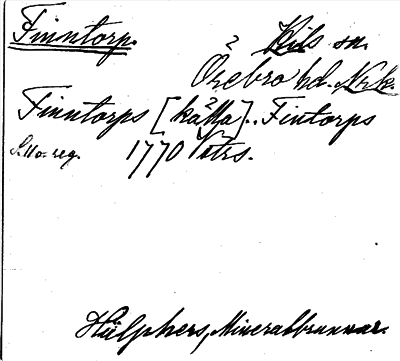 Finntorp. ? Kils sn.
Örebro hd. Nrk.
Finntorps [källa].. Fintorps
S.11 o. reg. 1770 Vtrs.
Hülphers, Mineralbrunnar.